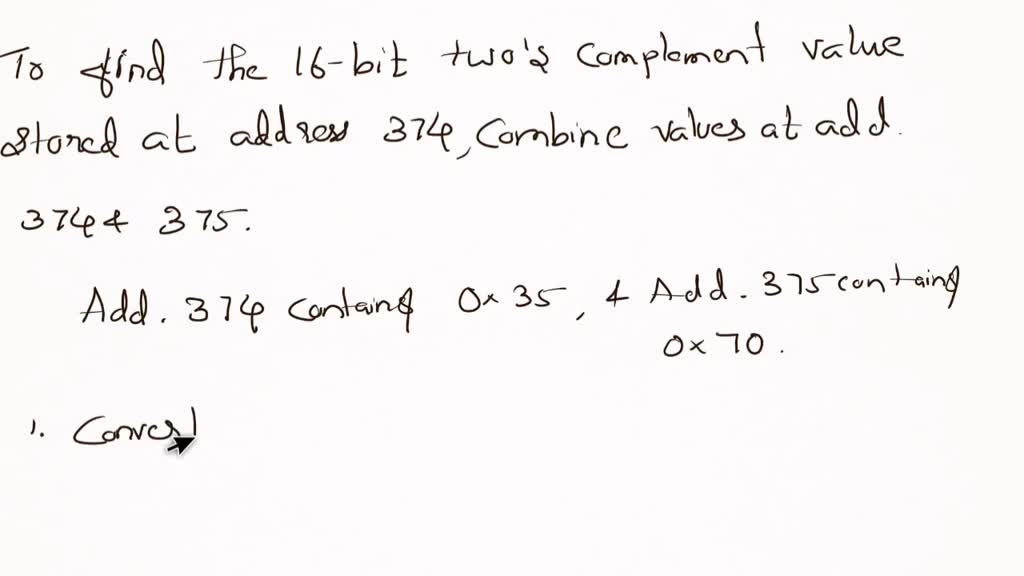 To find the 16-bit two's complement value
stored at address 374, Combine values at add.
374 & 375.
Add. 374 containg 0x35, & Add. 375 containg
0x70.
1. Convert